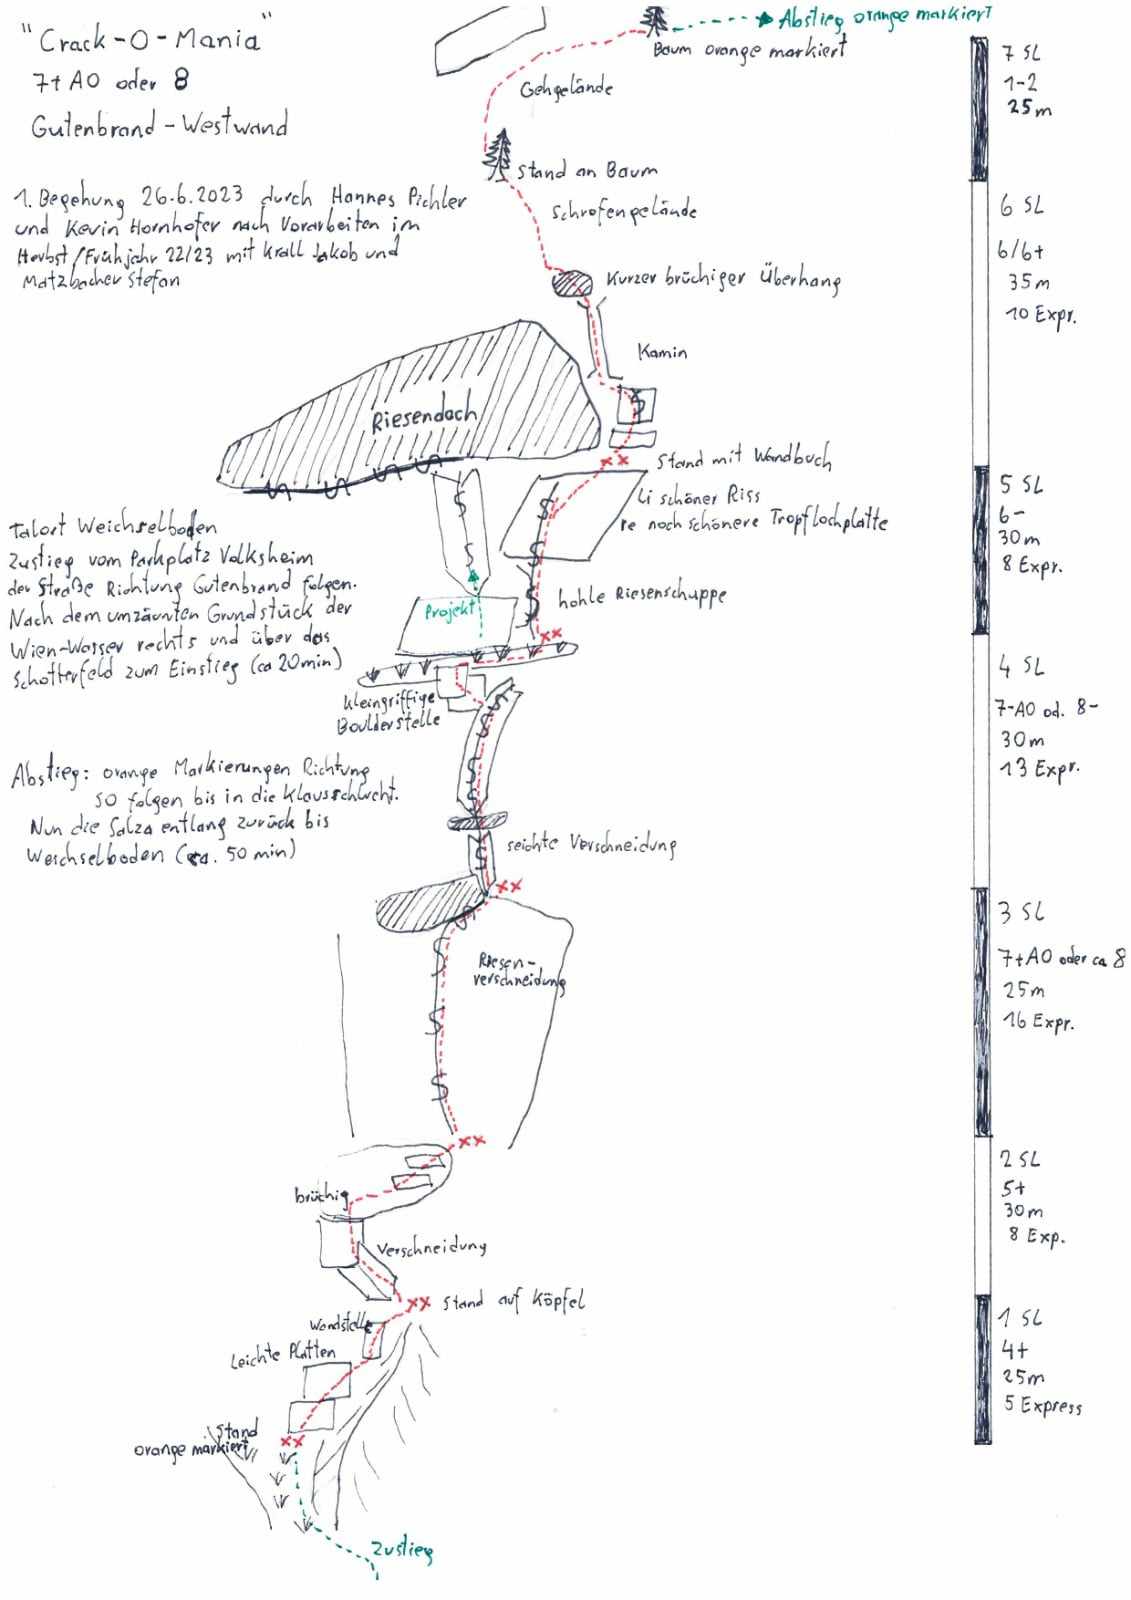 "Crack-O-Mania"
7+ A0 oder 8
Gutenbrand-Westwand
1. Begehung 26.6.2023 durch Hannes Pichler
und Kevin Hornhofer nach Vorarbeiten im
Herbst/Frühjahr 22/23 mit Krall Jakob und
Matzbacher Stefan
Abstieg orange markiert
Baum orange markiert
Gehgelände
Stand an Baum
Schrofengelände
Kurzer brüchiger Überhang
Kamin
Riesendach
Stand mit Wandbuch
Li schöner Riss
re noch schönere Tropflochplatte
hohle Riesenschuppe
Projekt
Talort Weichselboden
Zustieg vom Parkplatz Volksheim
der Straße Richtung Gutenbrand folgen.
Nach dem umzäunten Grundstück der
Wien-Wasser rechts und über das
Schotterfeld zum Einstieg (ca 20min)
kleingriffige
Boulderstelle
Abstieg: orange Markierungen Richtung
SO folgen bis in die Klausschlucht.
Nun die Salza entlang zurück bis
Weichselboden (ca. 50 min)
seichte Verschneidung
Riesen-
verschneidung
brüchig
Verschneidung
Stand auf Köpfel
Wandstelle
Leichte Platten
Stand
orange markiert
Zustieg
7 SL
1-2
25m
6 SL
6/6+
35m
10 Expr.
5 SL
6-
30m
8 Expr.
4 SL
7-A0 od. 8-
30m
13 Expr.
3 SL
7+A0 oder ca 8
25m
16 Expr.
2 SL
5+
30m
8 Exp.
1 SL
4+
25m
5 Express